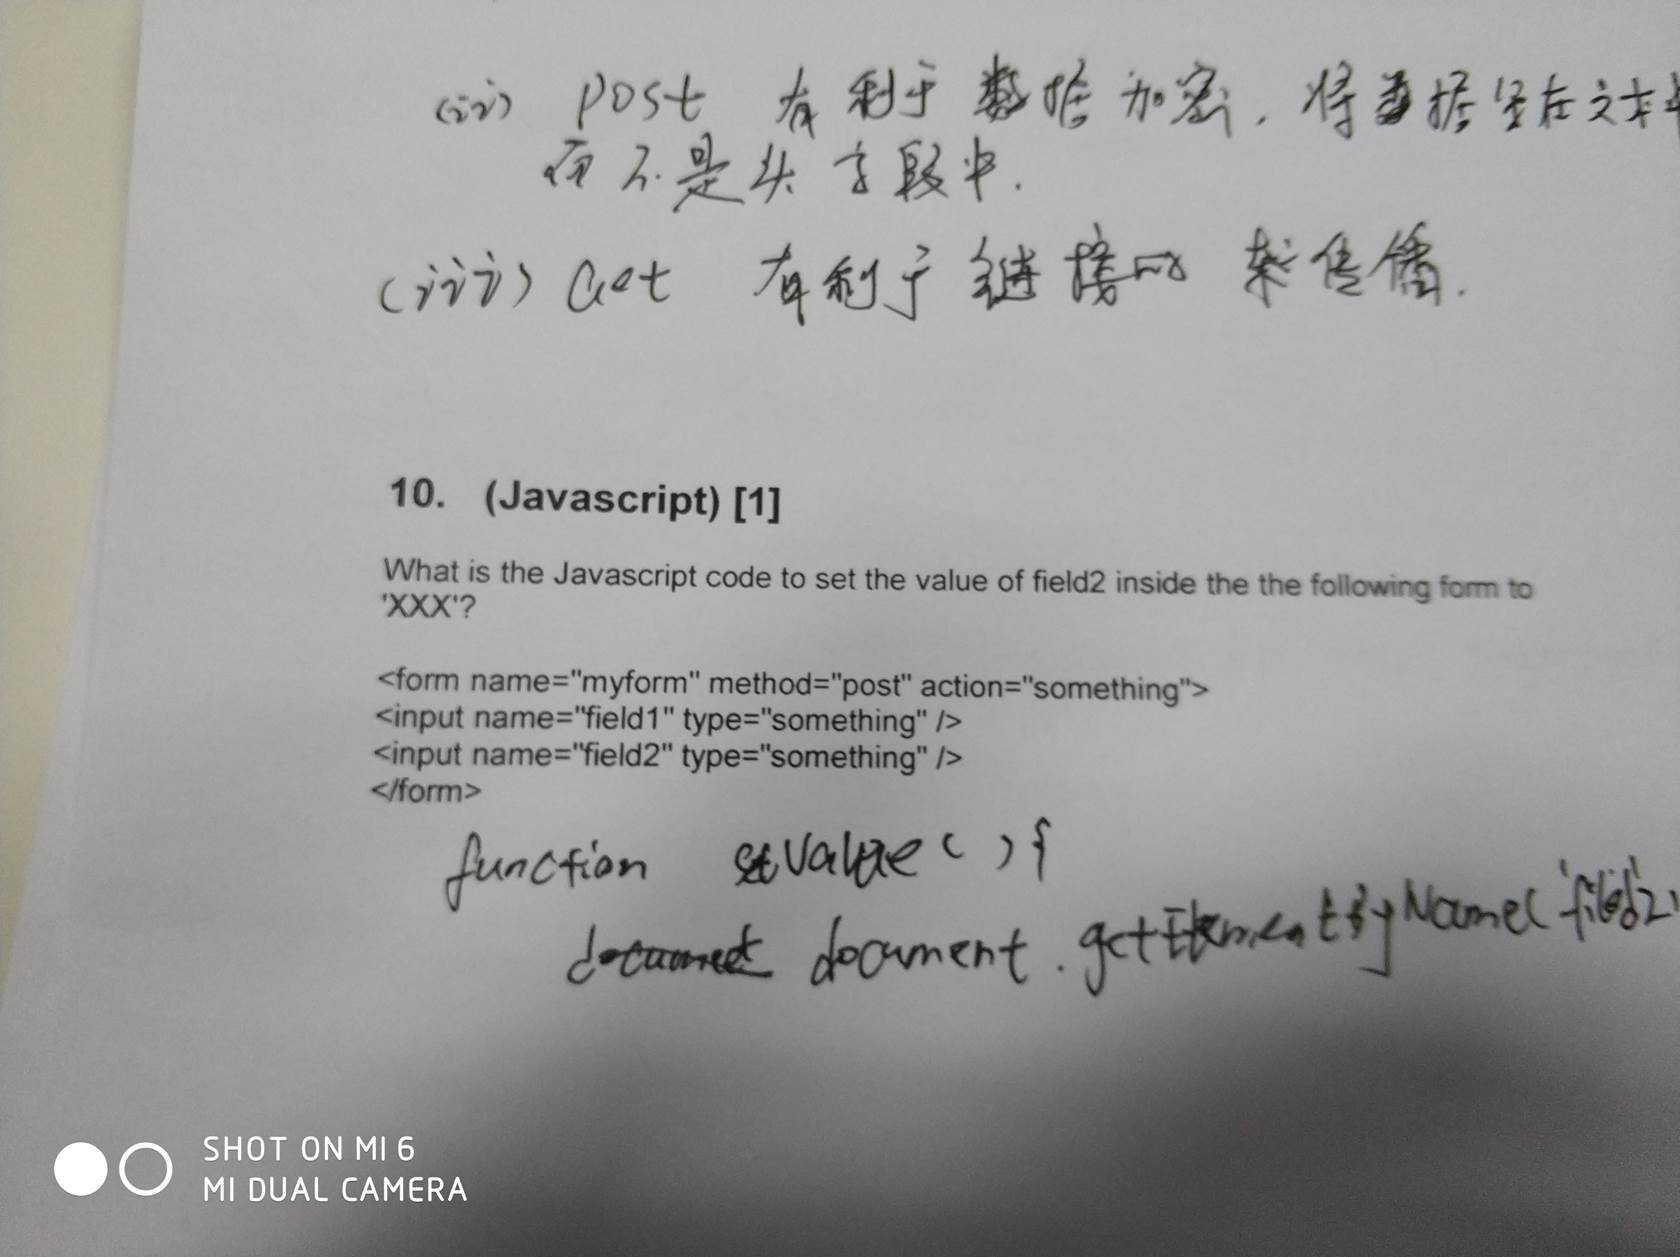 (ii) post 有利于数据加密, 将数据坚在文本
而不是头字段中.
(iii) Get 有利于链接的来传播.
10. (Javascript) [1]
What is the Javascript code to set the value of field2 inside the the following form to
'XXX'?
<form name="myform" method="post" action="something">
<input name="field1" type="something" />
<input name="field2" type="something" />
</form>
function setValue(){
document.getElementByName('field2'
SHOT ON MI 6
MI DUAL CAMERA